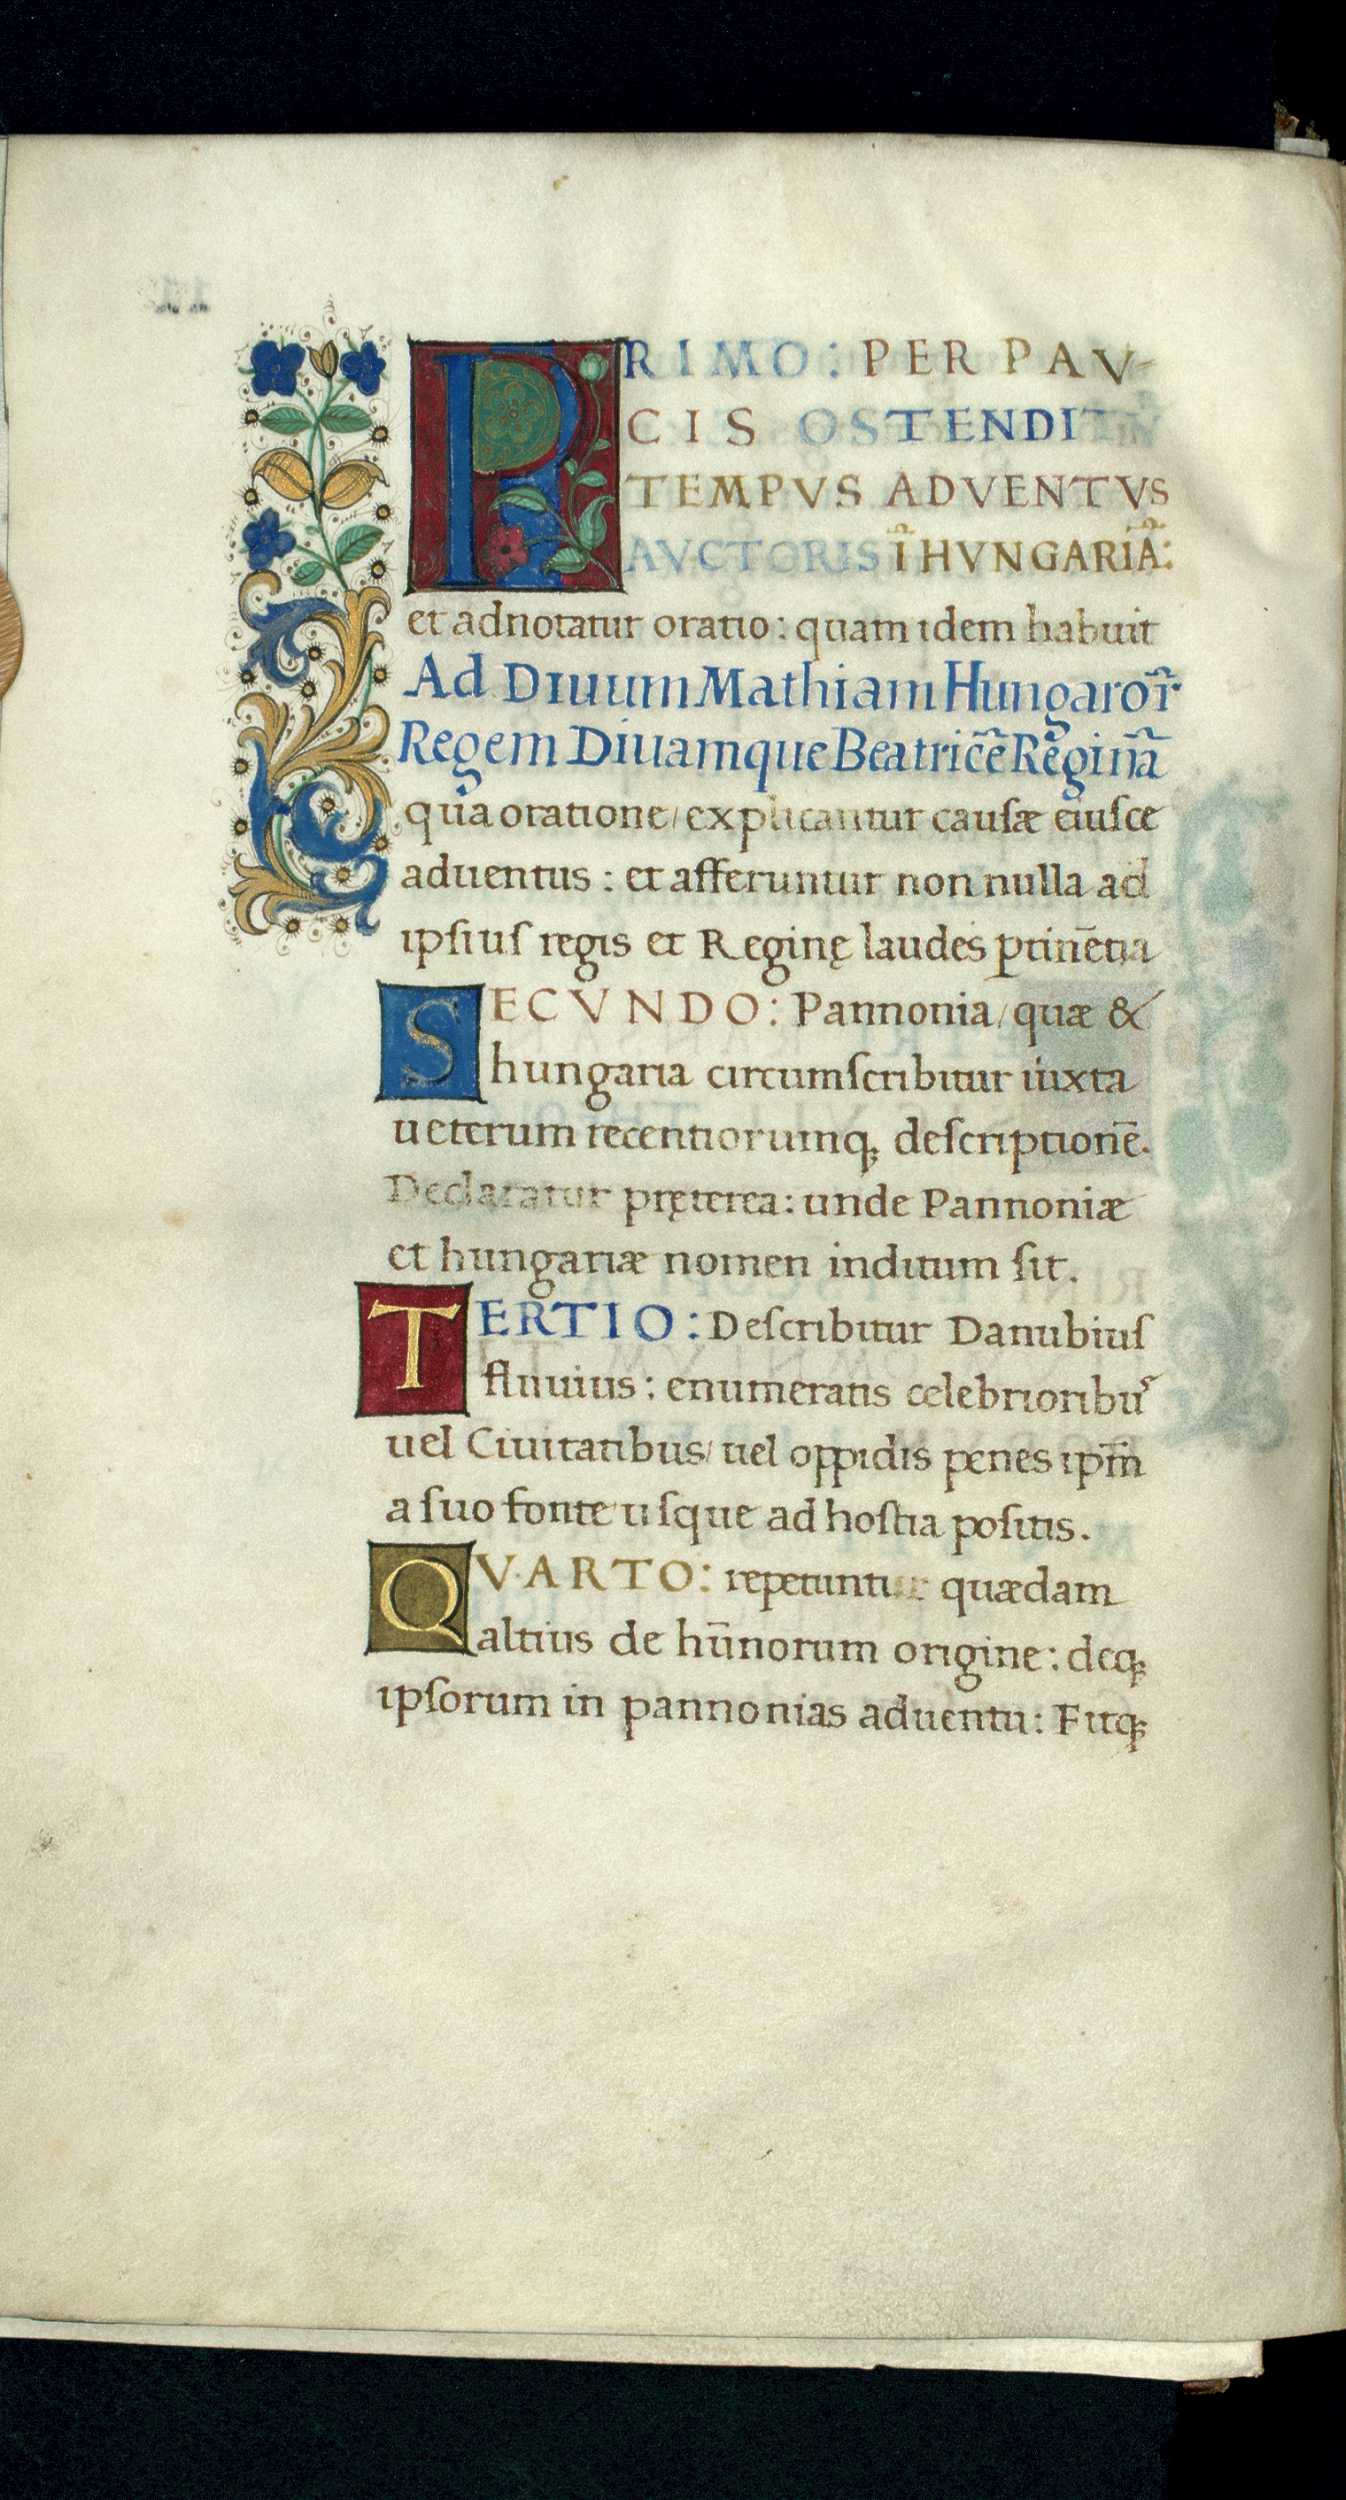 PRIMO: PER PAV-
CIS OSTENDIT
TEMPVS ADVENTVS
AVCTORIS ĩ HVNGARIÃ:
et adnotatur oratio: quam idem habuit
Ad Diuum Mathiam Hungaroꝝ̃
Regem Diuamque Beatricẽ Reginã
qua oratione/ explicantur causæ eiusce
aduentus: et afferuntur non nulla ad
ipsius regis et Reginę laudes ꝑtinẽtia
SECVNDO: Pannonia/ quæ &
hungaria circumscribitur iuxta
ueterum recentiorumq; descriptionẽ.
Declaratur pręterea: unde Pannoniæ
et hungariæ nomen inditum sit.
TERTIO: Describitur Danubius
fluuius: enumeratis celebrioribuˢ
uel Ciuitatibus/ uel oppidis penes ipm̃
a suo fonte usque ad hostia positis.
QVARTO: repetuntur quædam
altius de hũnorum origine: deq;
ipsorum in pannonias aduentu: Fitq;